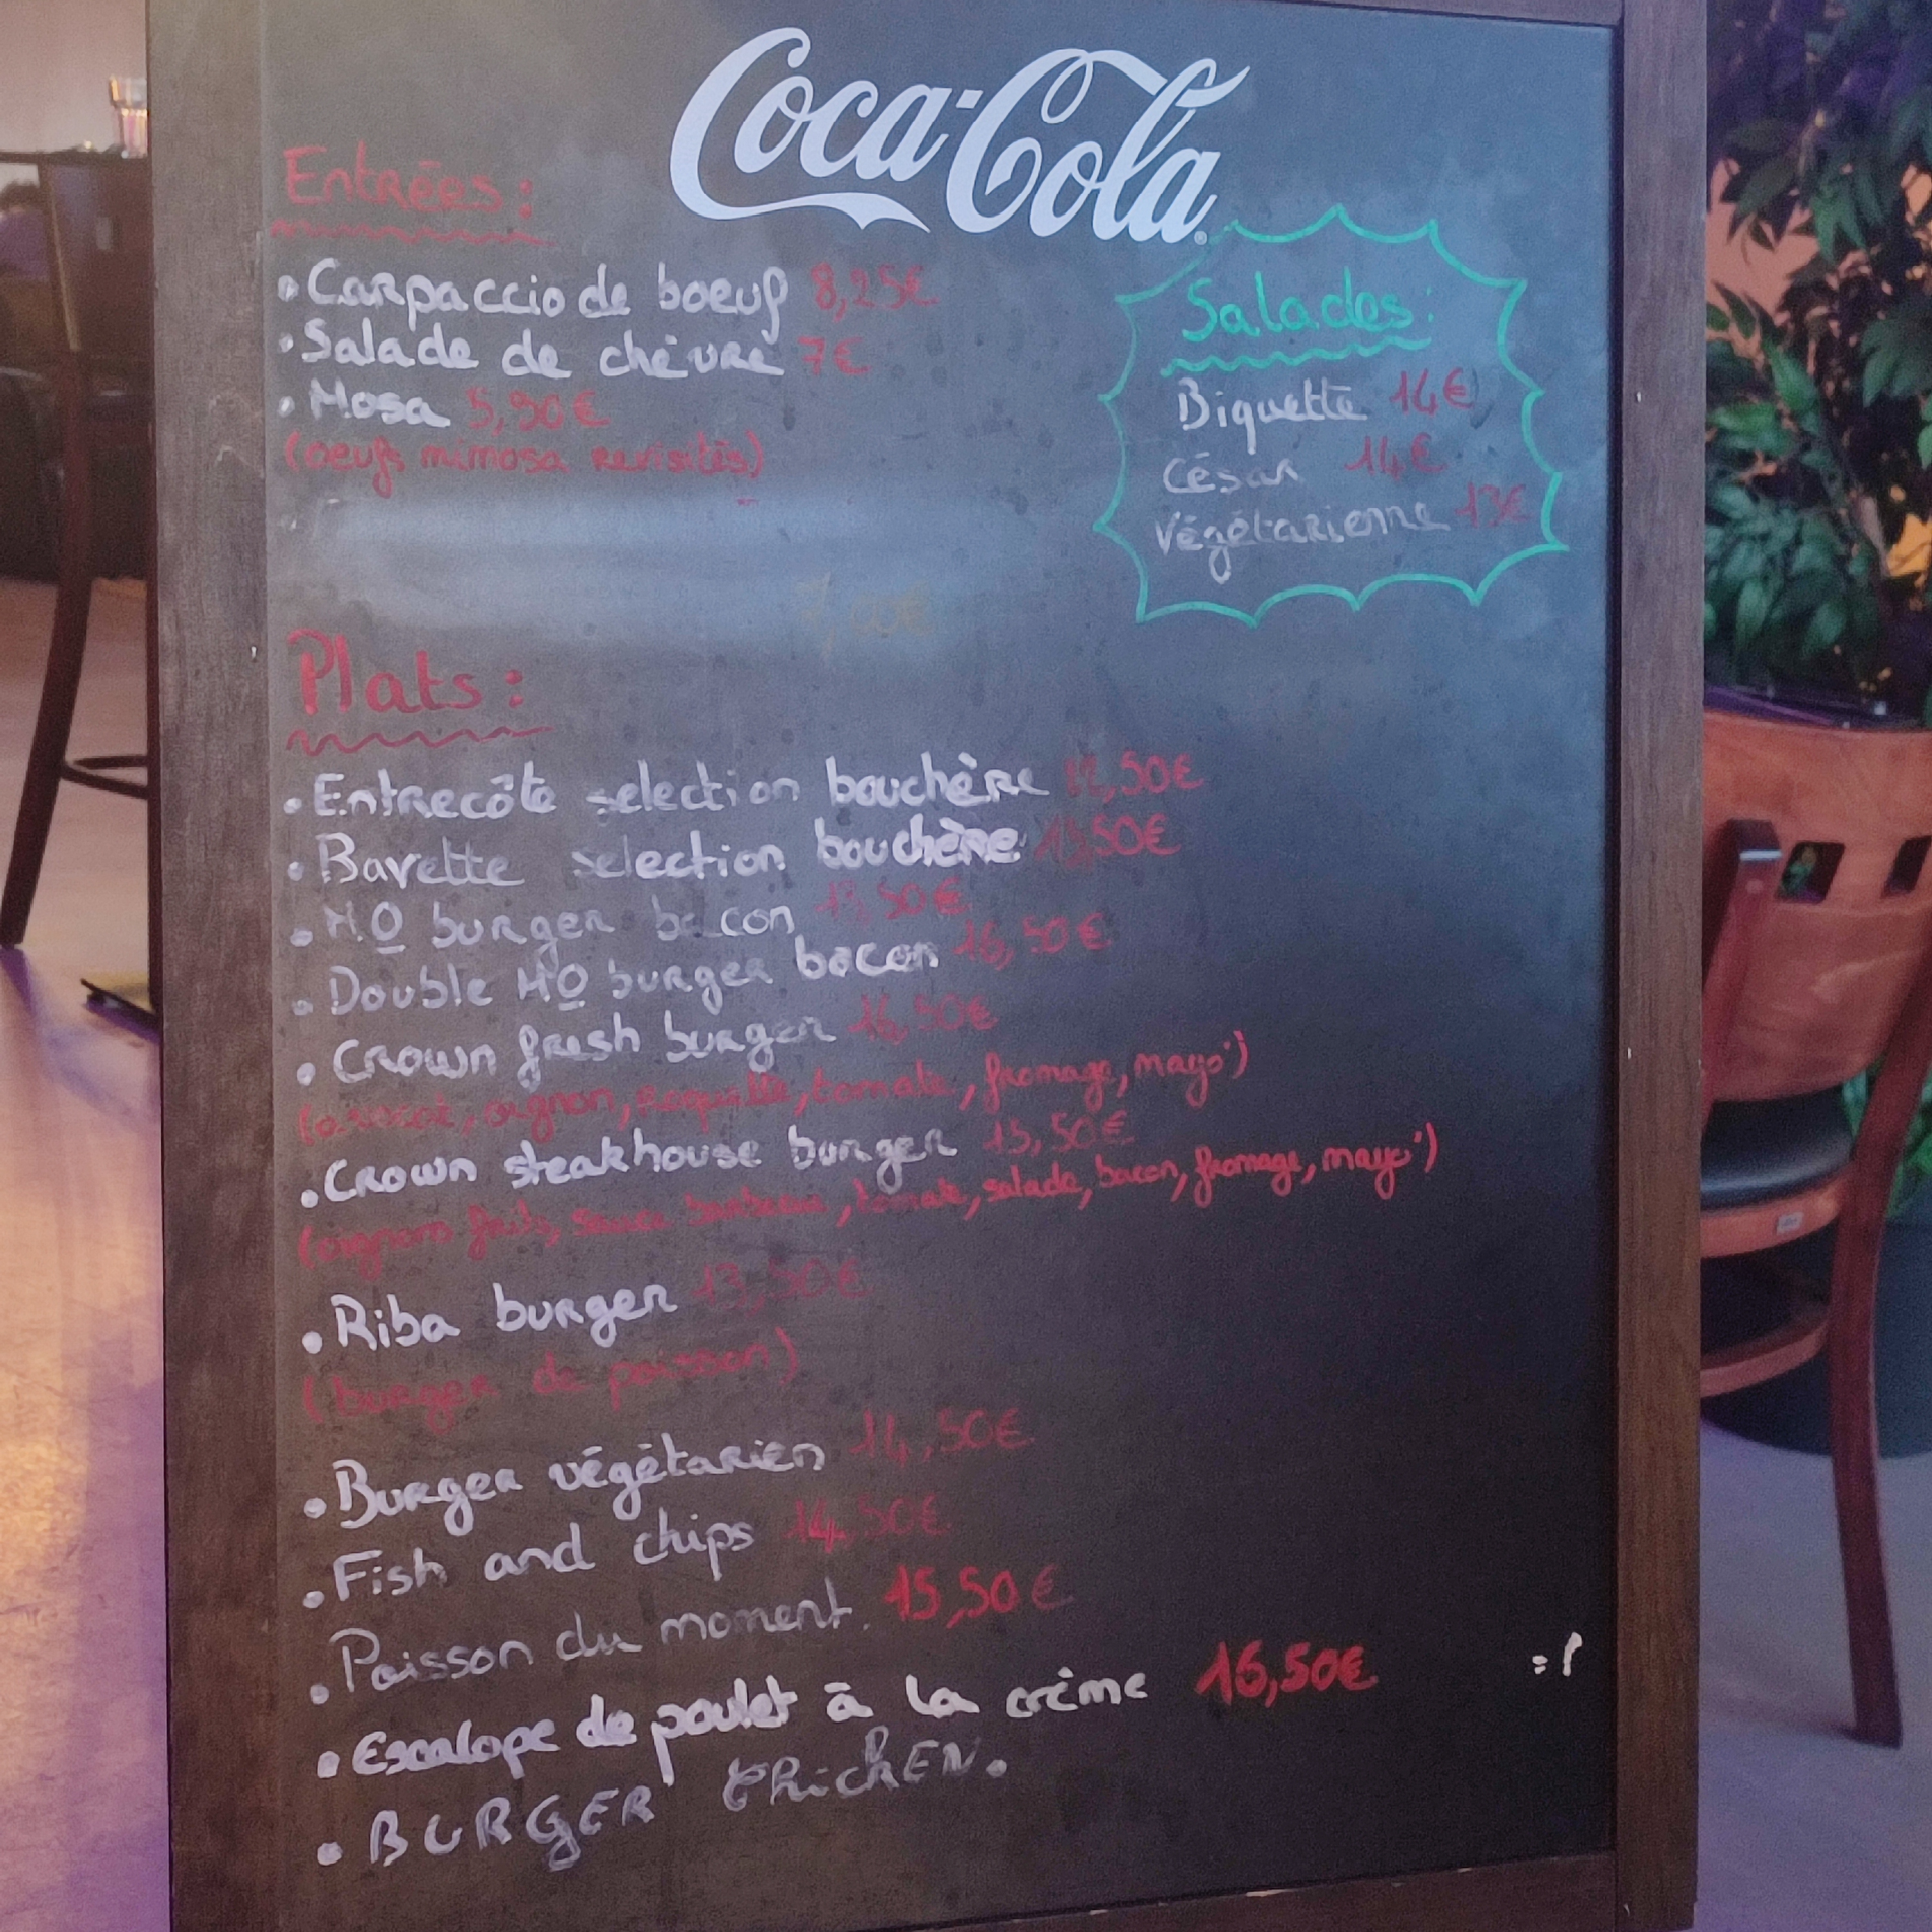 Coca-Cola
Entrées:
• Carpaccio de boeuf 8,25€
• Salade de chèvre 7€
• Mosa 5,90€
(oeufs mimosa revisités)
Salades:
Biquette 14€
César 14€
Végétarienne 13€
7,00€
Plats:
• Entrecôte selection bouchère ,50€
• Bavette selection bouchère ,50€
• HQ burger bacon 13,50€
• Double HQ burger bacon 16,50€
• Crown fresh burger 16,50€
(avocat, oignon, roquette, tomate, fromage, mayo')
• Crown steakhouse burger 15,50€
(oignons frits, sauce barbecue, tomate, salade, bacon, fromage, mayo')
• Riba burger 13,50€
(burger de poisson)
• Burger végétarien 14,50€
• Fish and chips 14,50€
• Poisson du moment. 15,50€
• Escalope de poulet à la crème 16,50€
• BURGER ChickEN.